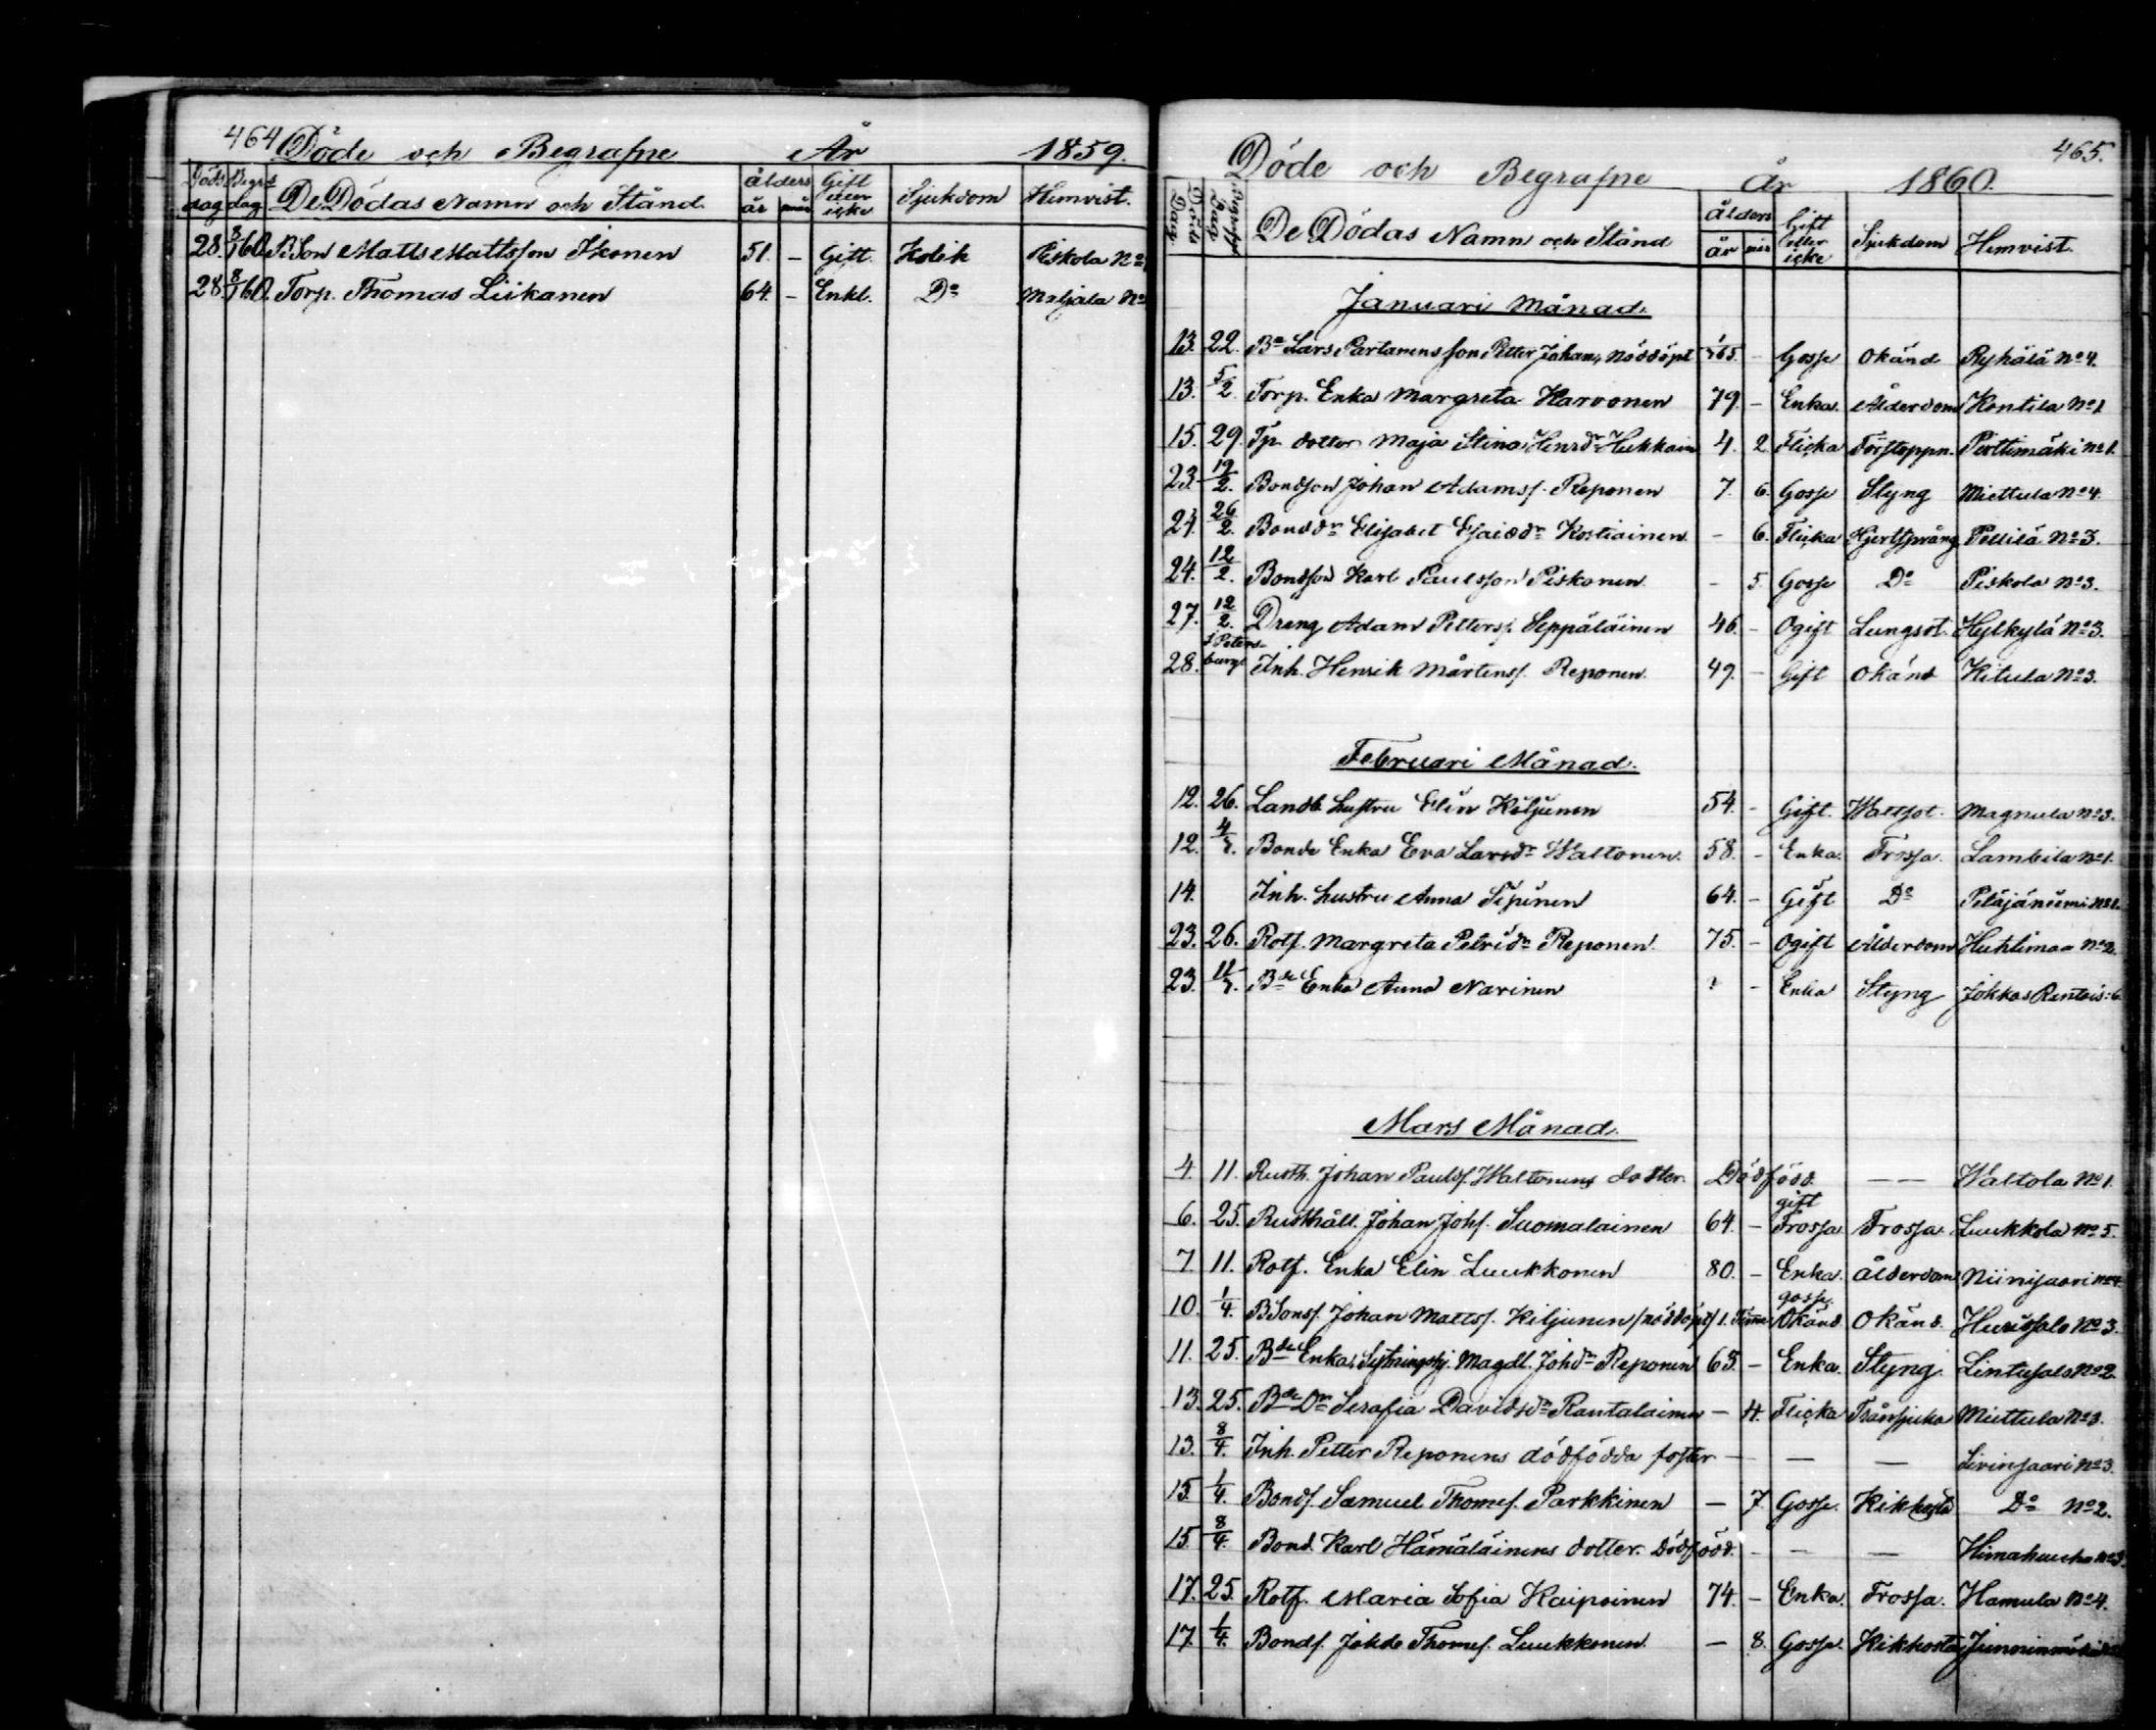 464 Döde och Begrafne År 1859.
Döds dag Begrs dag De Dödas Namn och Stånd ålders år mån Gift eller icke Sjukdom Hemvist.
28. 8/1 60 B.Son Matts Mattsson Ikonen 51. - Gift. Kolik Piskola No
28. 8/1 60. Torp. Thomas Liikanen 64. - Enkl. Do Maljala No
465.
Döde och Begrafne år 1860.
Döds Dag Begrafn. Dag De Dödas Namn och Stånd Ålders år mån Gift eller icke Sjukdom Hemvist.
Januari Månad.
13. 22. Bde Lars Partanens son Petter Johan, nöddöpt 1/365. - Gosse Okänd Ryhälä No 4.
13. 5/2 Torp. Enka Margreta Harvonen 79. - Enka. Ålderdom Kontila No 1
15. 29. Tp. dotter Maja Stina Henrdr Hukkain 4. 2. Flicka Förstoppn. Perttimäki No 1.
23. 19/2. Bondson Johan Adamsf. Reponen 7. 6. Gosse Styng Miettula No 4.
24. 26/2. Bonddr Elisabet Esaiædr Kostiainen. - 6. Flicka Hjertsprång Pellilä No 3.
24. 12/2. Bondson Karl Paulsson Piskonen - 5. Gosse Do Piskola No 3.
27. 12/2. Dreng Adam Pettersf. Seppäläinen 46. - Ogift Lungsot. Hylkylä No 3.
28. i Petersburg Inh. Henrik Mårtensf. Reponen. 49. - Gift Okänd Hitula No 3.
Februari Månad.
12. 26. Landb. hustru Elin Kiljunen 54. - Gift. Wattsot. Magnula No 3.
12. 4/3. Bonde Enka Eva Larsdr Waltonen. 58. - Enka. Frossa. Lambila No 1.
14. Inh. hustru Anna Sipinen 64. - Gift Do Pitäjäniemi No 2.
23. 26. Rotf. Margreta Petridr Reponen. 75. - Ogift Ålderdom Huhtimaa No 2.
23. 11/3. Bde Enka Anna Narinen ? - Enka Styng Jokkas
Mars Månad.
4. 11. Rusth. Johan Paulsf. Waltonens dotter. Dödfödd. - - Waltola No 1.
6. 25. Rusthåll. Johan Johsf. Suomalainen 64. - gift Frossa Frossa. Luukkola No 5.
7. 11. Rotf. Enka Elin Luukkonen 80. - Enka. ålderdom Niinisaari No 4.
10. 1/4. B.Sonsf. Johan Mattsf. Kiljunen /nöddöpt/ 1. Timme gosse Okänd. Okänd. Hurissalo No 3.
11. 25. Bde Enka, Sytningshj. Magdl. Johdr Reponen 65. - Enka. Styng. Lintusalo No 2.
13. 25. Bde Dr Serafia Davidsdr Rantalainen - 4. Flicka Trånsjuka Miettula No 3.
13. 8/4. Inh. Petter Reponens dödfödda foster - - - Sirinsaari No 3.
15. 1/4. Bondf. Samuel Thomesf. Parkkinen - 7. Gosse. Kikhosta Do No 2.
15. 8/4. Bond. Karl Hämäläinens dotter. Dödfödd. - - - Himahuuha No 3
17. 25. Rotf. Maria Sofia Kaipainen 74. - Enka. Frossa. Hamula No 4.
17. 1/4. Bondf. Johdo Thomesf. Luukkonen. - 8. Gosse. Kikhosta Junninmäki